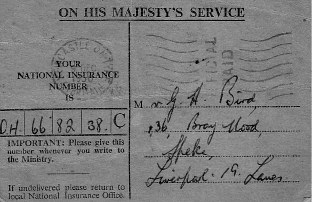 ON HIS MAJESTY'S SERVICE
YOUR
NATIONAL INSURANCE
NUMBER
IS
D.H. 66 82 38. C
IMPORTANT: Please give this
number whenever you write to
the Ministry.
If undelivered please return to
local National Insurance Office.
OFFICIAL
PAID
Mr. G. H. Bird,
136, Bray Road,
Speke,
Liverpool. 19. Lancs